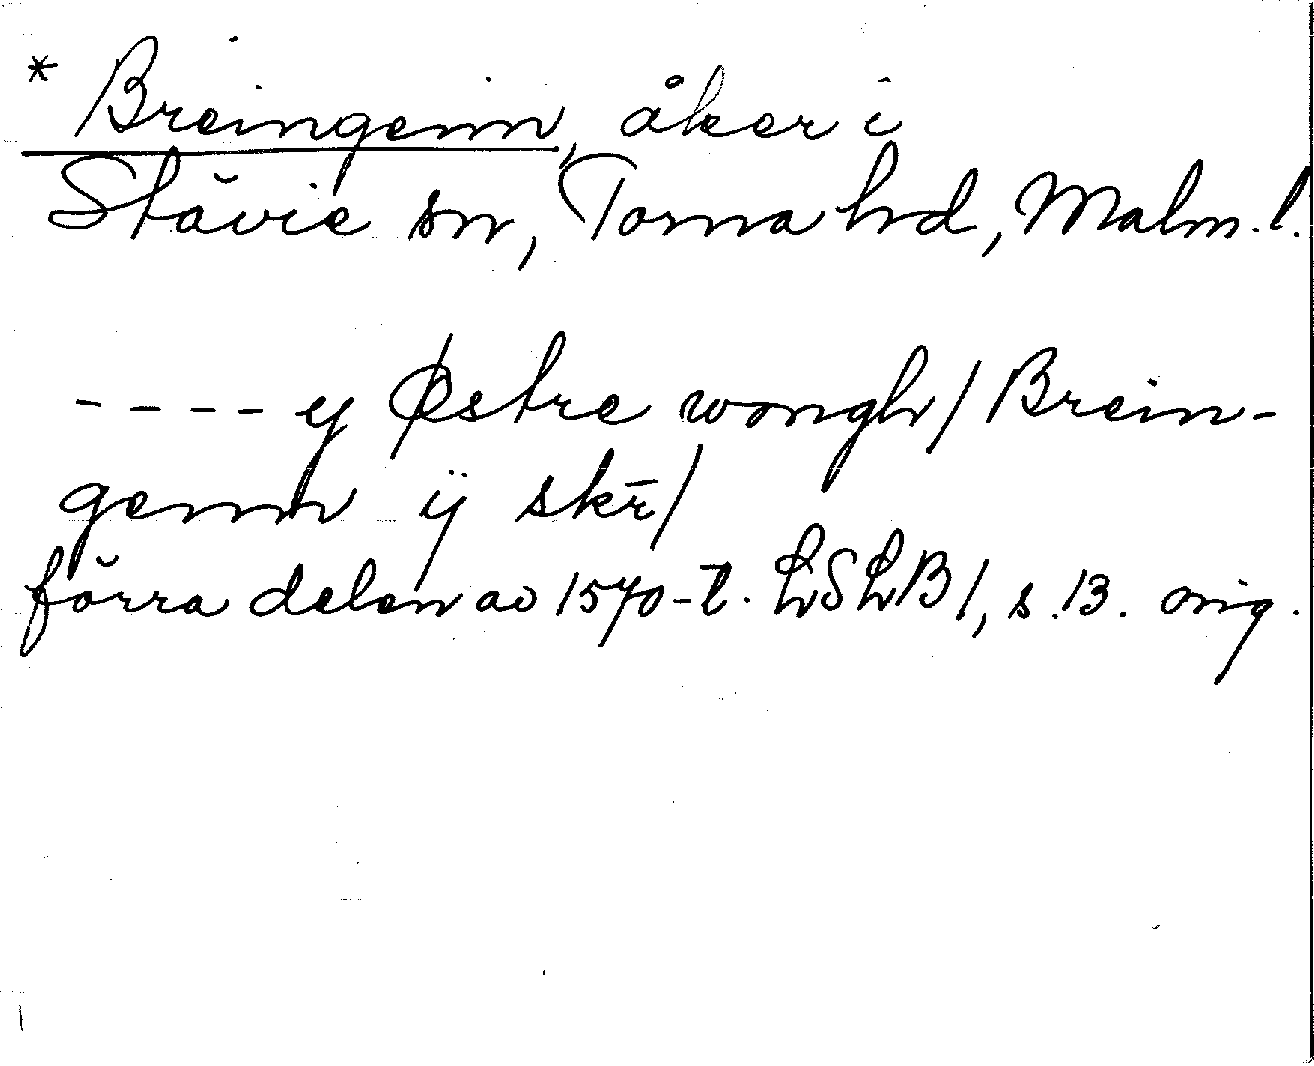 * Breingenn, åker i
Stävie sn, Torna hd, Malm. l.
- - - - y Østre wongh / Brein-
genn ij skr̄ /
förra delen av 1570-t. LSLB 1, s. 13. orig.